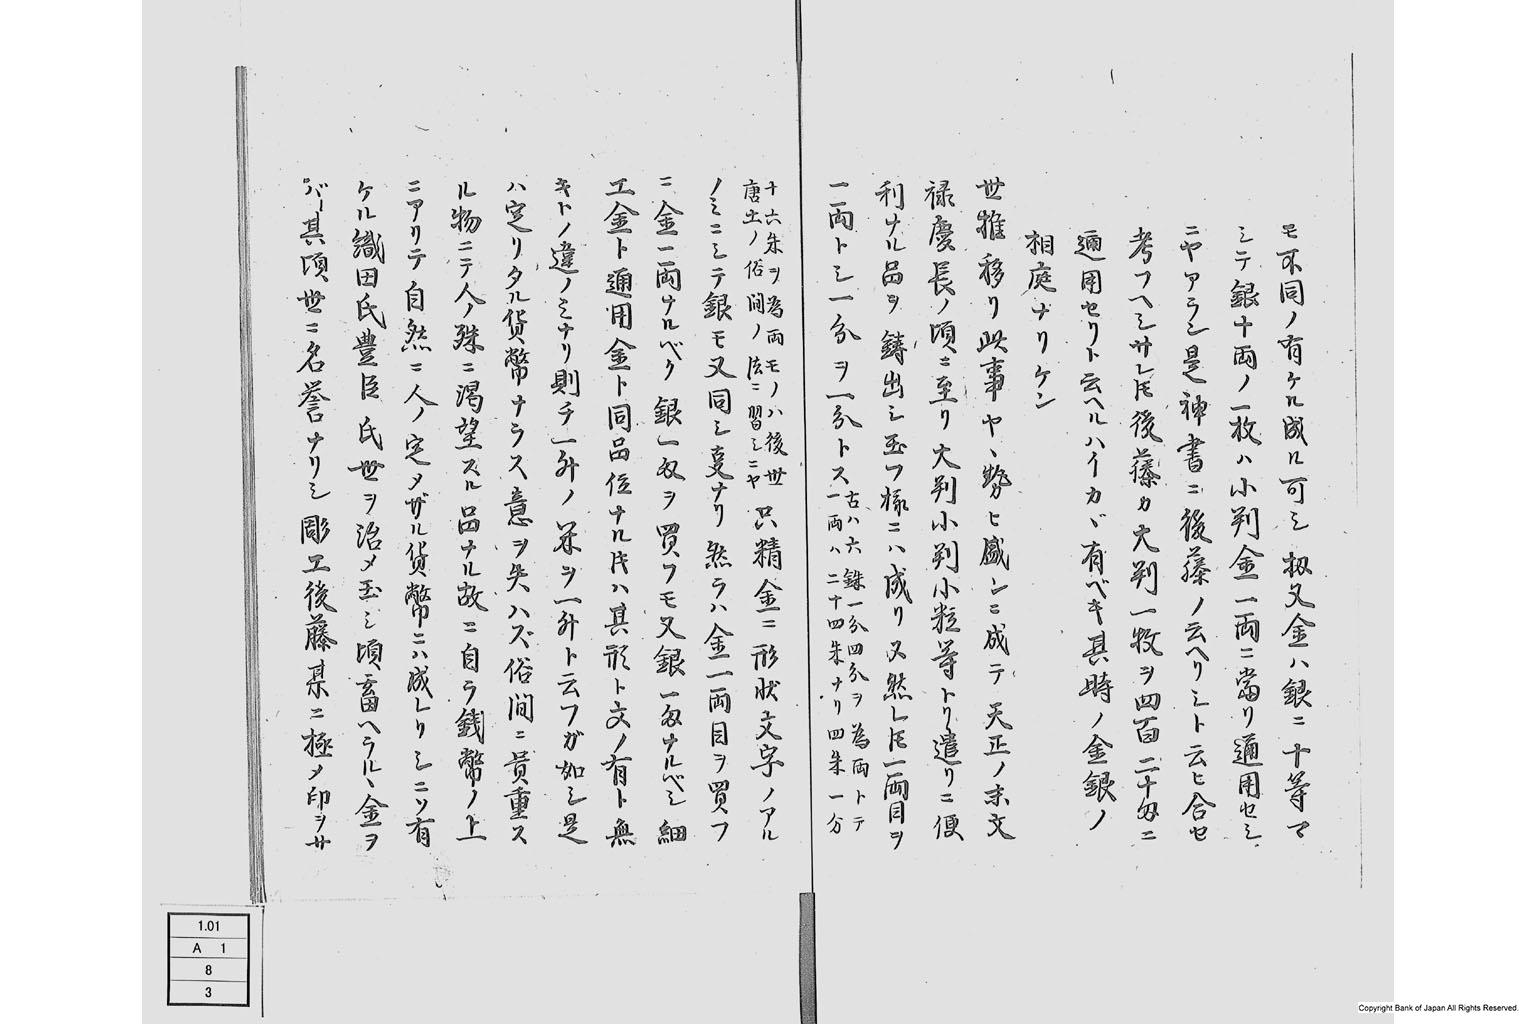 モ不同ノ有ケル成ル可シ扨又金ハ銀ニ十等マ
シテ銀十両ノ一枚ハ小判金一両ニ當リ通用セシ
ニヤアラン是神書ニ後藤ノ云ヘリシト云ヒ合セ
考フヘシサレ𪜈後藤カ大判一枚ヲ四百二十匁ニ
通用セリト云ヘルハイカヾ有ベキ其時ノ金銀ノ
相庭ナリケン
世推移リ此事ヤヽ勢ヒ盛ンニ成テ天正ノ末文
禄慶長ノ頃ニ至リ大判小判小粒等トリ遣リニ便
利ナル品ヲ鋳出シ玉フ様ニハ成リ又然レ𪜈一両目ヲ
一両トシ一分ヲ一分トス
古ハ六銖一分四分ヲ為両トテ
一両ハ二十四朱ナリ四朱一分
十六朱ヲ為両モノハ後世
唐土ノ俗間ノ法ニ習シニヤ
只精金ニ形状文字ノアル
ノミニシテ銀モ又同シ㕝ナリ然ラハ金一両目ヲ買フ
ニ金一両ナルベク銀一匁ヲ買フモ又銀一匁ナルベシ細
工金ト通用金ト同品位ナル𪜈ハ其形ト文ノ有ト無
キトノ違ノミナリ則チ一升ノ米ヲ一升ト云フガ如シ是
ハ定リタル貨幣ナラス意ヲ失ハズ俗間ニ貴重ス
ル物ニテ人ノ殊ニ渇望スル品ナル故ニ自ラ銭幣ノ上
ニアリテ自然ニ人ノ定メザル貨幣ニハ成レリシニソ有
ケル織田氏豊臣氏世ヲ治メ玉シ頃蓄ヘラルヽ金ヲ
バ其頃世ニ名誉ナリシ彫工後藤某ニ極メ印ヲサ
1.01
A 1
8
3
Copyright Bank of Japan All Rights Reserved.